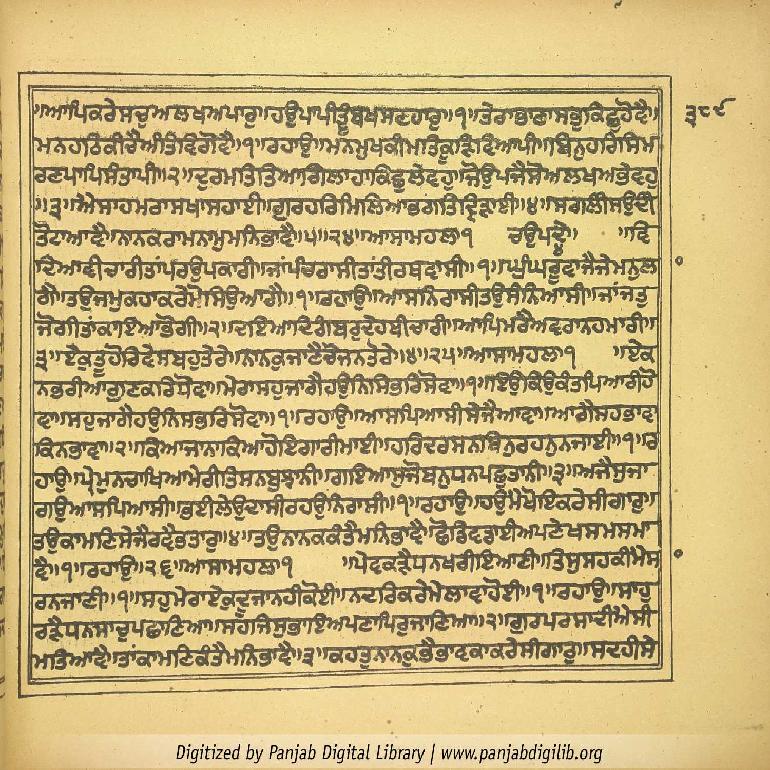 ੩੮੯
॥ਆਪਿਕਰੇਸਚੁਅਲਖਅਪਾਰੁ॥ਹਉਪਾਪੀਤੂੰਬਖਸਣਹਾਰੁ॥੧॥ਤੇਰਾਭਾਣਾਸਭੁਕਿਛੁਹੋਵੈ॥
ਮਨਹਠਿਕੀਚੈਅੰਤਿਵਿਗੋਵੈ॥੧॥ਰਹਾਉ॥ਮਨਮੁਖਕੀਮਤਿਕੂੜਿਵਿਆਪੀ॥ਬਿਨੁਹਰਿਸਿਮ
ਰਣਪਾਪਿਸੰਤਾਪੀ॥੨॥ਦੁਰਮਤਿਤਿਆਗਿਲਾਹਾਕਿਛੁਲੇਵਹੁ॥ਜੋਉਪਜੈਸੋਅਲਖਅਭੇਵਹੁ
॥੩॥ਐਸਾਹਮਰਾਸਖਾਸਹਾਈ॥ਗੁਰਹਰਿਮਿਲਿਆਭਗਤਿਦ੍ਰਿੜਾਈ॥੪॥ਸਗਲੀਸਉਦੀ
ਤੋਟਾਆਵੈ॥ਨਾਨਕਰਾਮਨਾਮੁਮਨਿਭਾਵੈ॥੫॥੨੪॥ਆਸਾਮਹਲਾ੧ ਚਉਪਦੇ ॥ਵਿ
ਦਿਆਵੀਚਾਰੀਤਾਂਪਰਉਪਕਾਰੀ॥ਜਾਂਪੰਚਰਾਸੀਤਾਂਤੀਰਥਵਾਸੀ॥੧॥ਘੁੰਘਰੂਵਾਜੈਜੇਮਨੁਲਾ
ਗੈ॥ਤਉਜਮੁਕਹਾਕਰੇਮੋਸਿਉਆਗੈ॥੧॥ਰਹਾਉ॥ਆਸਨਿਰਾਸੀਤਉਸੰਨਿਆਸੀ॥ਜਾਂਜਤੁ
ਜੋਗੀਤਾਂਕਾਇਆਭੋਗੀ॥੨॥ਦਇਆਦਿਗੰਬਰੁਦੇਹਬੀਚਾਰੀ॥ਆਪਿਮਰੈਅਵਰਾਨਹਮਾਰੀ॥
੩॥ਏਕੁਤੂਹੋਰਿਵੇਸਬਹੁਤੇਰੇ॥ਨਾਨਕੁਜਾਣੈਚੋਜਨਤੇਰੇ॥੪॥੨੫॥ਆਸਾਮਹਲਾ੧ ॥ਏਕ
ਨਭਰੀਆਗੁਣਕਰਿਧੋਵਾ॥ਮੇਰਾਸਹੁਜਾਗੈਹਉਨਿਸਿਭਰਿਸੋਵਾ॥੧॥ਇਉਕਿਉਕੰਤਪਿਆਰੀਹੋ
ਵਾ॥ਸਹੁਜਾਗੈਹਉਨਿਸਭਰਿਸੋਵਾ॥੧॥ਰਹਾਉ॥ਆਸਪਿਆਸੀਸੇਜੈਆਵਾ॥ਆਗੈਸਹਭਾਵਾ
ਕਿਨਭਾਵਾ॥੨॥ਕਿਆਜਾਨਾਕਿਆਹੋਇਗਾਰੀਮਾਈ॥ਹਰਿਦਰਸਨਬਿਨੁਰਹਨੁਨਜਾਈ॥੧॥ਰ
ਹਾਉ॥ਪ੍ਰੇਮੁਨਚਾਖਿਆਮੇਰੀਤਿਸਨਬੁਝਾਨੀ॥ਗਇਆਸੁਜੋਬਨੁਧਨਪਛੁਤਾਨੀ॥੩॥ਅਜੈਸੁਜਾ
ਗਉਆਸਪਿਆਸੀ॥ਭਈਲੇਉਦਾਸੀਰਹਉਨਿਰਾਸੀ॥੧॥ਰਹਾਉ॥ਹਉਮੈਖੋਇਕਰੇਸੀਗਾਰੁ॥
ਤਉਕਾਮਣਿਸੇਜੈਰਵੈਭਤਾਰੁ॥੪॥ਤਉਨਾਨਕਕੰਤੈਮਨਿਭਾਵੈ॥ਛੋਡਿਵਡਾਈਅਪਣੇਖਸਮਸਮਾ
ਵੈ॥੧॥ਰਹਾਉ॥੨੬॥ਆਸਾਮਹਲਾ੧ ॥ਪੇਵਕੜੈਧਨਖਰੀਇਆਣੀ॥ਤਿਸੁਸਹਕੀਮੈਸ
ਰਨਜਾਣੀ॥੧॥ਸਹੁਮੇਰਾਏਕੁਦੂਜਾਨਹੀਕੋਈ॥ਨਦਰਿਕਰੇਮੇਲਾਵਾਹੋਈ॥੧॥ਰਹਾਉ॥ਸਾਹੁ
ਰੜੈਧਨਸਾਚੁਪਛਾਣਿਆ॥ਸਹਜਿਸੁਭਾਇਅਪਣਾਪਿਰੁਜਾਣਿਆ॥੨॥ਗੁਰਪਰਸਾਦੀਐਸੀ
ਮਤਿਆਵੈ॥ਤਾਂਕਾਮਣਿਕੰਤੈਮਨਿਭਾਵੈ॥੩॥ਕਹਤੁਨਾਨਕੁਭੈਭਾਵਕਾਕਰੇਸੀਗਾਰੁ॥ਸਦਹੀਸੇ
Digitized by Panjab Digital Library | www.panjabdigilib.org